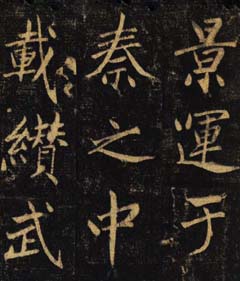 景運于
秦之中
載纘武